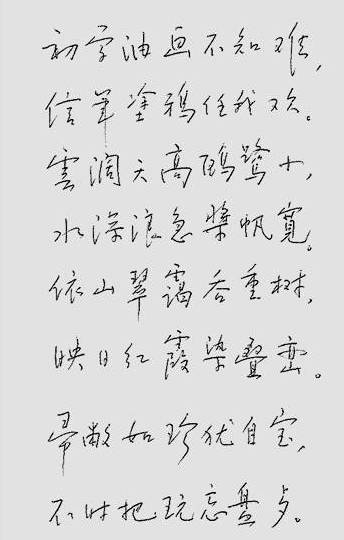 初学油画不知难，
信筆塗鸦任我欢。
雲阔天高鸥鹭小，
水深浪急桨帆寬。
依山翠靄吞重树，
映日红霞染疊峦。
帚敝如珍犹自宝，
不时把玩忘盘歺。